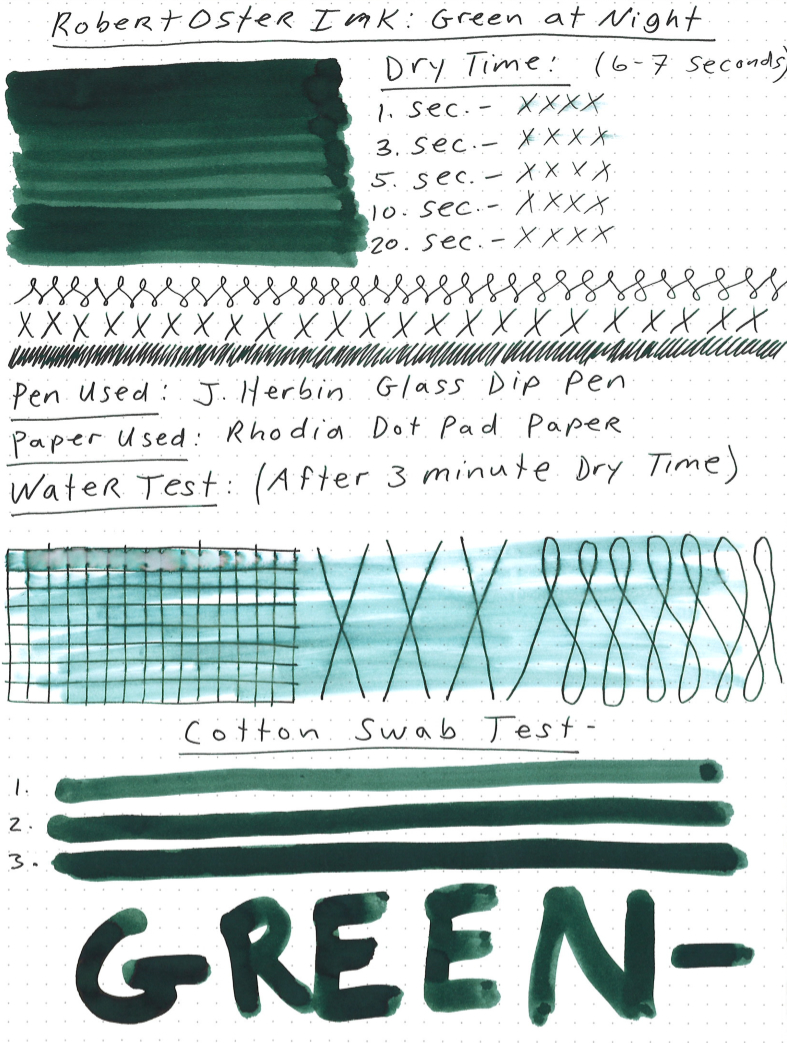 Robert Oster Ink: Green at Night
Dry Time: (6-7 seconds)
1. sec.- XXXX
3. sec.- XXXX
5. sec.- XXXX
10. sec.- XXXX
20. sec.- XXXX
X X X X X X X X X X X X X X X X X X X X X X X X
Pen Used: J. Herbin Glass Dip Pen
Paper Used: Rhodia Dot Pad Paper
Water Test: (After 3 minute Dry Time)
X X X
Cotton Swab Test-
1.
2.
3.
GREEN-